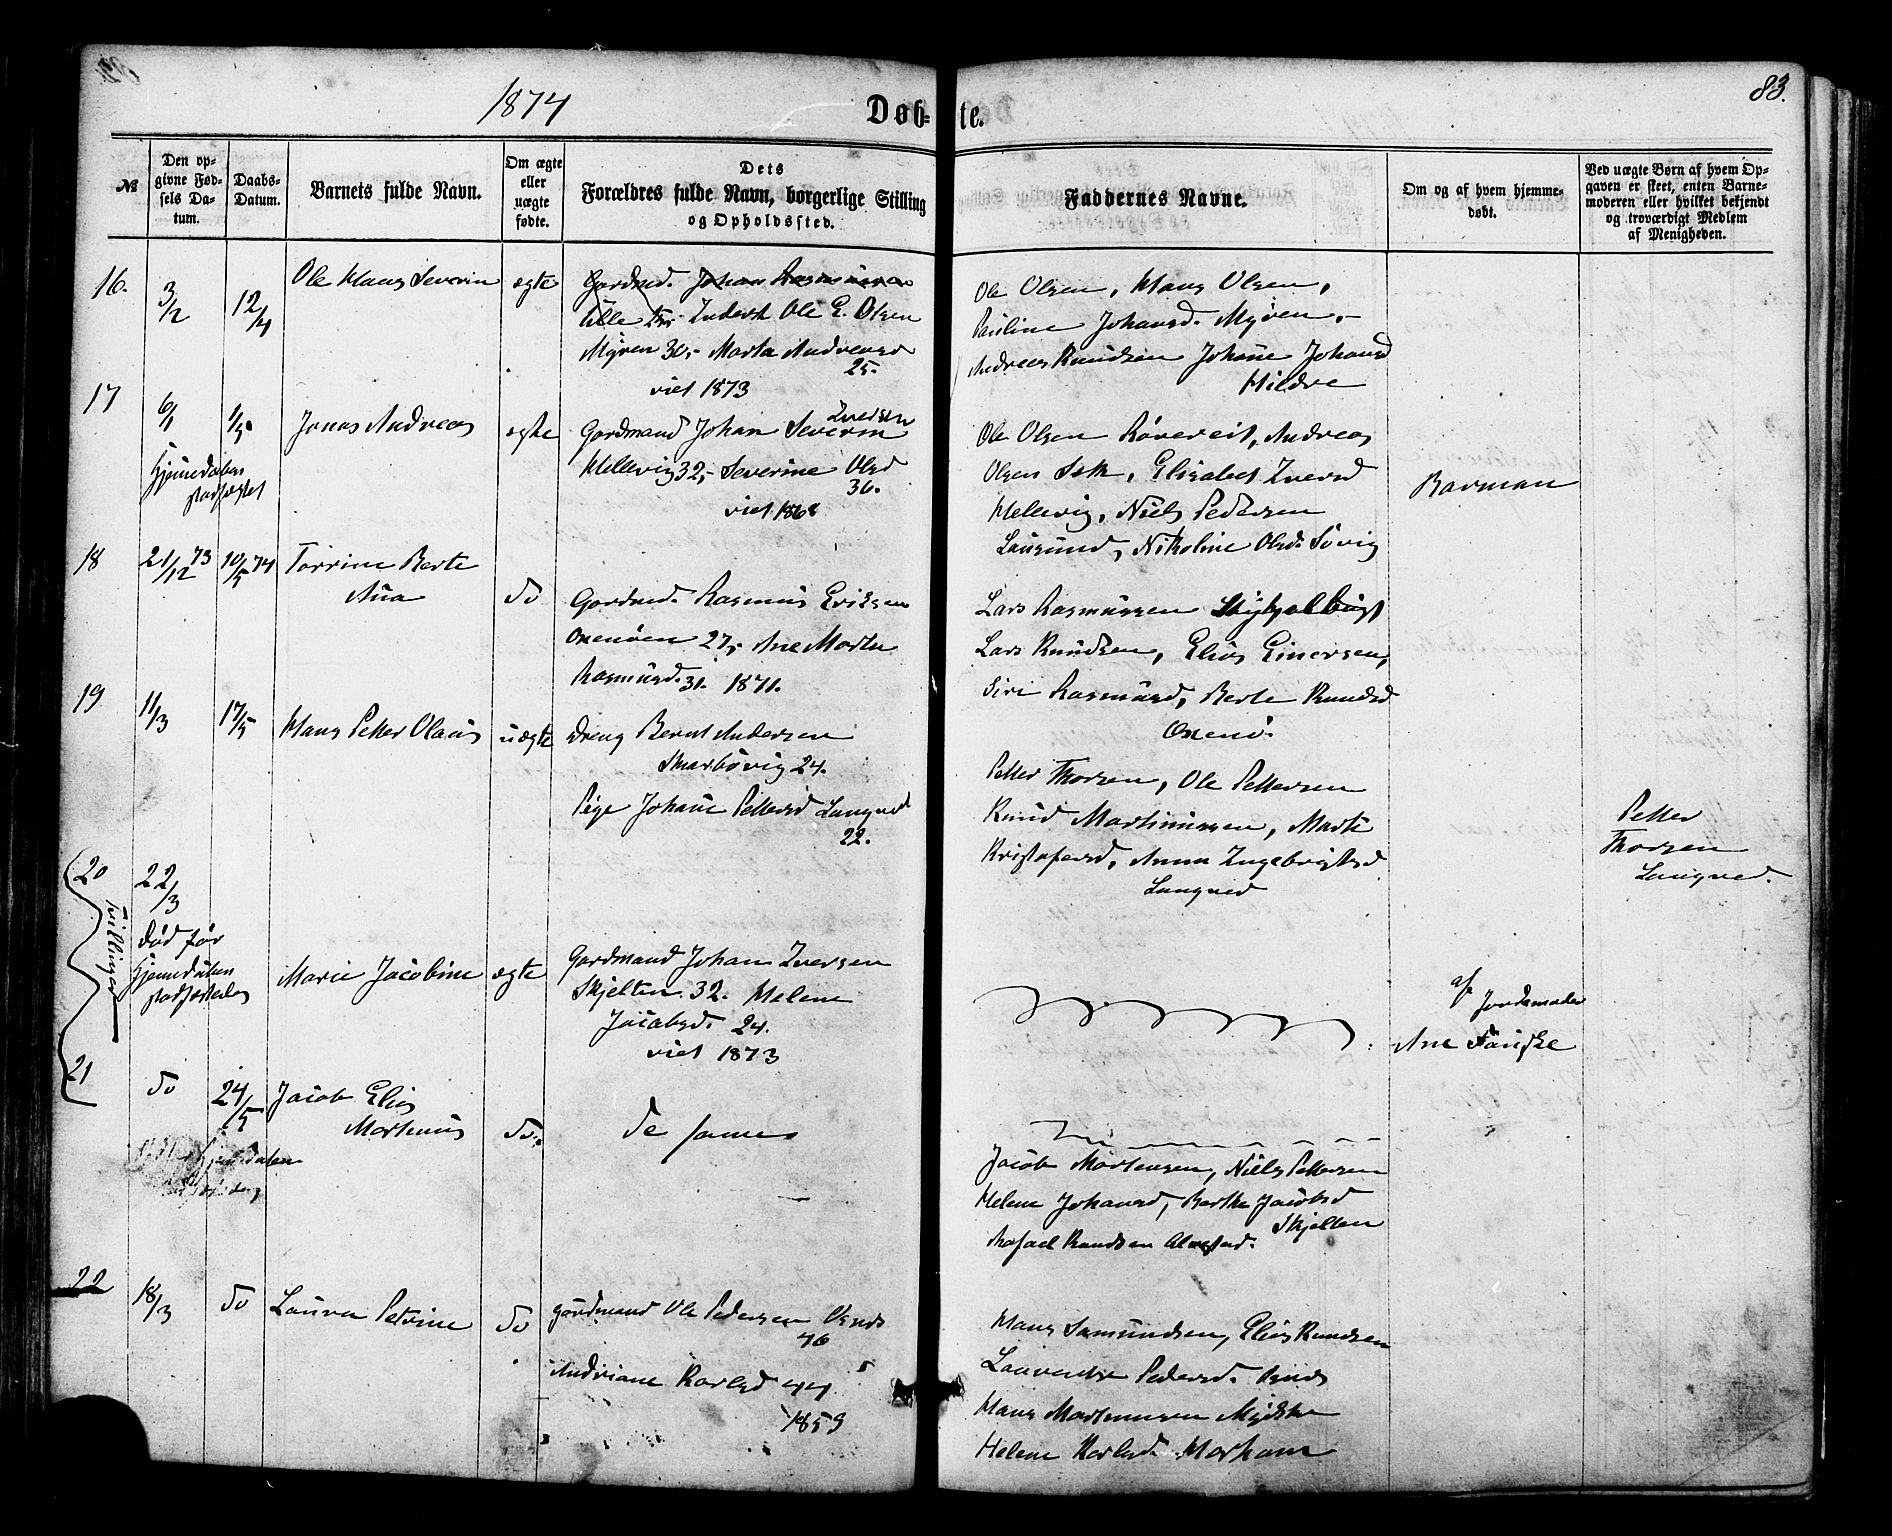 1874
Døb-
te.
83.
№
Den op-
givne Fød-
sels Da-
tum.
Daabs-
Datum.
Barnets fulde Navn.
Om ægte
eller
uægte
fødte.
Dets
Forældres fulde Navn, borgerlige Stilling
og Opholdssted.
Faddernes Navne.
Om og af hvem hjemme-
døbt.
Ved uægte Børn af hvem Op-
gaven er skeet, enten Barne-
moderen eller hvilket bekjendt
og troværdigt Medlem
af Menigheden.
16.
3/2
12/4
Ole Hans Severin
ægte
Gardmd. Johan Rasmussen
Inderst Ole E. Olsen
Myren 30,- Marta Andreasd
25.
viet 1873
Ole Olsen, Hans Olsen,
Pauline Johansd. Myren,-
Andreas Knudsen Johane Johansd
Hildre
17
6/1
1/5
Hjemedaben
stadfæstet
Jonas Andreas
ægte
Gardmand Johan Severin
Iversen
Hellevig 32,- Severine Olsd
36.
viet 1868
Ole Olsen Røvereit, Andreas
Olsen, Elisabet Iversd
Hellevig, Niels Pedersen
Laugsund, Nikoline Olsd. Søvig
Barman
18
21/12 73
10/5 74
Torrine Berte
Ana
do
Gardmd. Rasmus Eriksen
Oxenøen 27,- Ane Marta
Rasmusd. 31. 1871.
Lars Rasmussen
Lars Knudsen, Elias Einersen,
Siri Rasmusd, Berte Knudsd
Oxenø.
19
11/3
17/5
Hans Petter Olaus
uægte
Dreng Bernt Andersen
Skarbøvig 24.
Pige Johane Pettersd Langved
22.
Petter Thorsen, Ole Pettersen
Knud Martinussen, Marte
Kristofersd, Anna Ingebrigtsd
Langved
Petter
Thorsen
Langved.
20
Tvillinger
22/3
Død før
Hjemedaben
stadfæstedes
Marie Jacobine
ægte
Gardmand Johan Iversen
Skjelten 32. Helene
Jacobsd. 24.
viet 1873
af Jordemoder
Ane Fauske
21
do
24/5
Hjemedaben
Jacob Elias
Martinus
do.
de samme
Jacob Mortensen, Niels Pettersen
Helene Johansd, Berthe Jacobsd
Skjelten
Rafael Knudsen Alvestad.
22
18/3
do
Laura Petrine
do
gardmand Ole Pedersen Vignds
46
Andriane Karlsd 44
1853
Hans Samundsen, Elias Knudsen
Laurentse Pedersd.
Hans Martinussen
Helene Karlsd. Marham